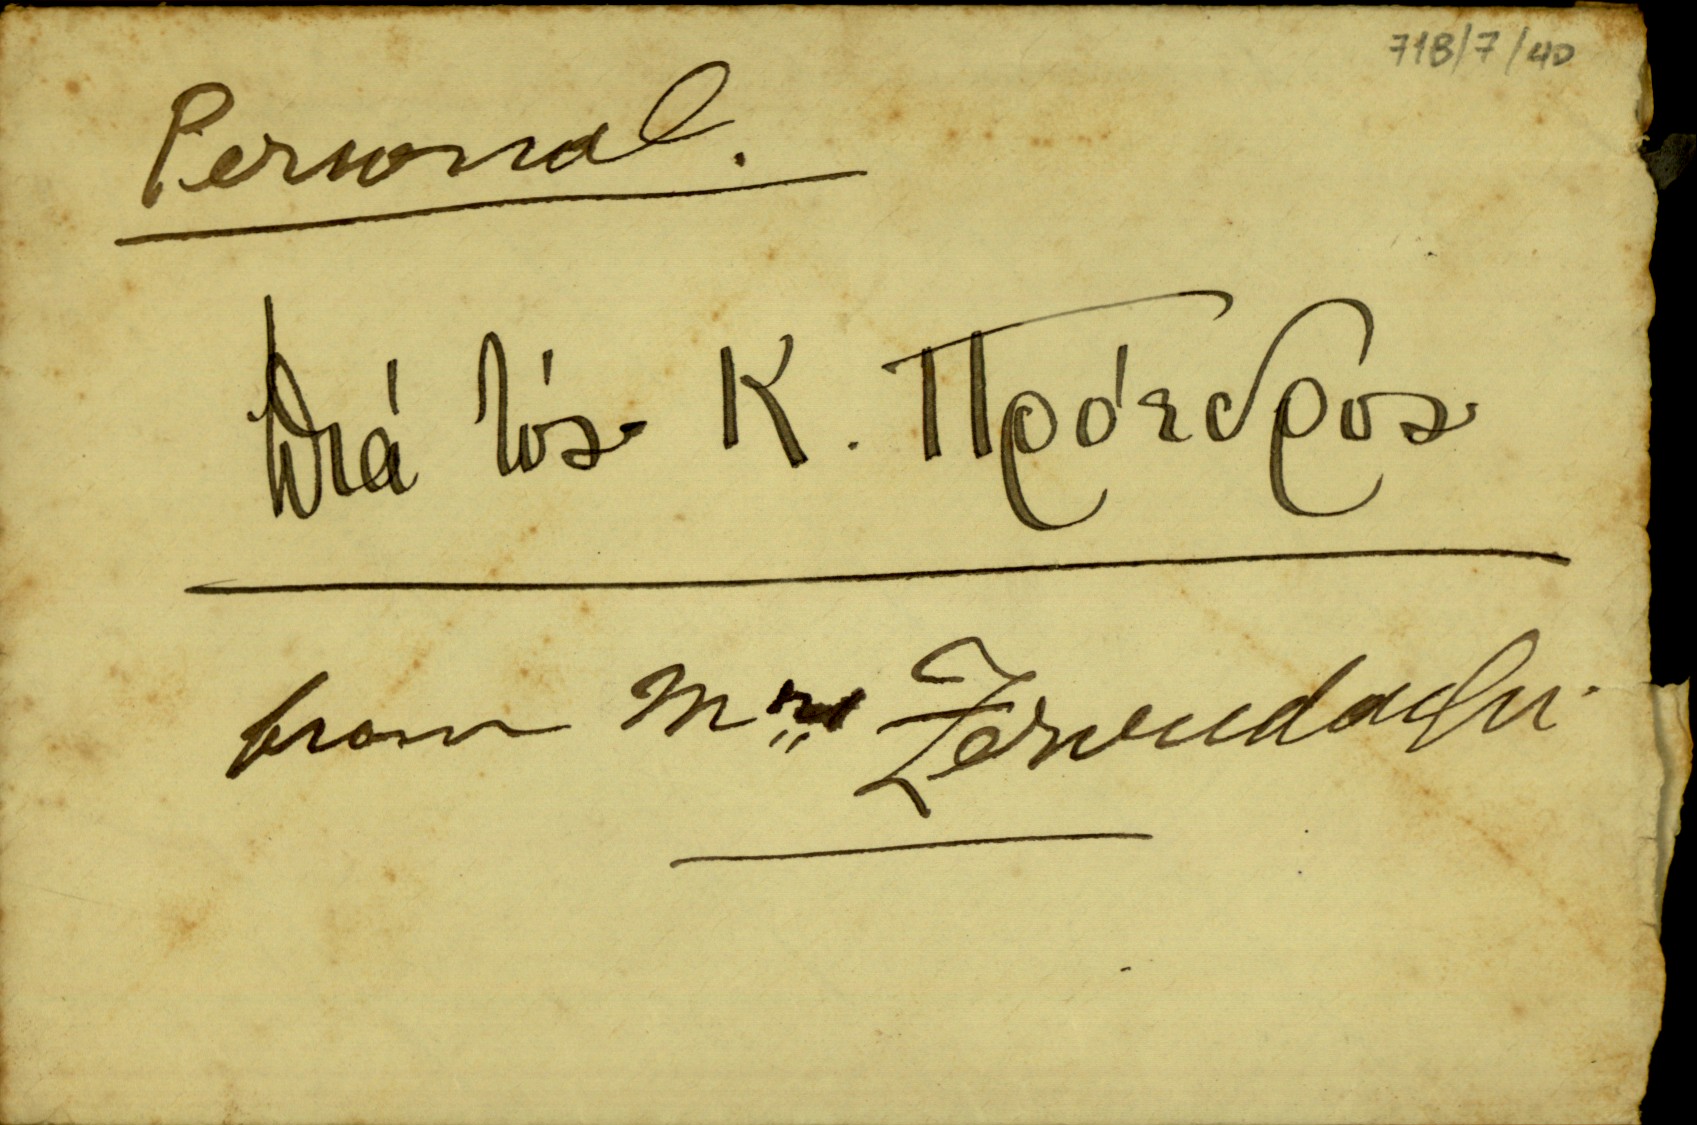 718/7/40
Personal.
Διά τόν Κ. Πρόεδρον
from Mrs Zervudachi.